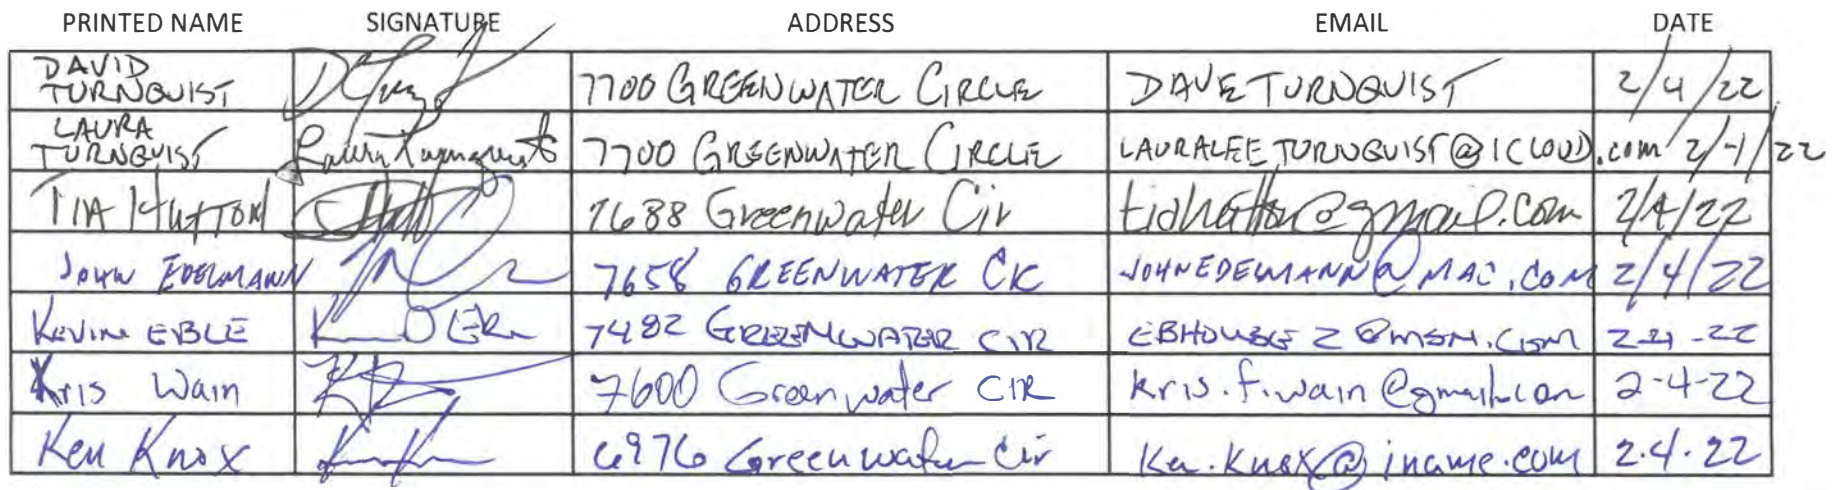 PRINTED NAME SIGNATURE ADDRESS EMAIL DATE
DAVID TURNQUIST 7700 GREENWATER CIRCLE DAVE TURNQUIST 2/4/22
LAURA TURNQUIST Laura Turnquist 7700 GREENWATER CIRCLE LAURALEETURNQUIST@ICLOUD.com 2/4/22
TIA HUTTON 7688 Greenwater Cir tiahutton@gmail.com 2/4/22
JOHN EDELMANN 7658 GREENWATER CR JOHNEDELMANN@MAC.COM 2/4/22
KEVIN EBLE 7482 GREENWATER CIR @MSN.COM 2-4-22
Kris Wain 7600 Greenwater CIR Kris.f.wain@gmail.com 2-4-22
Ken Knox 6976 Greenwater Cir Ken.Knox@iname.com 2.4.22